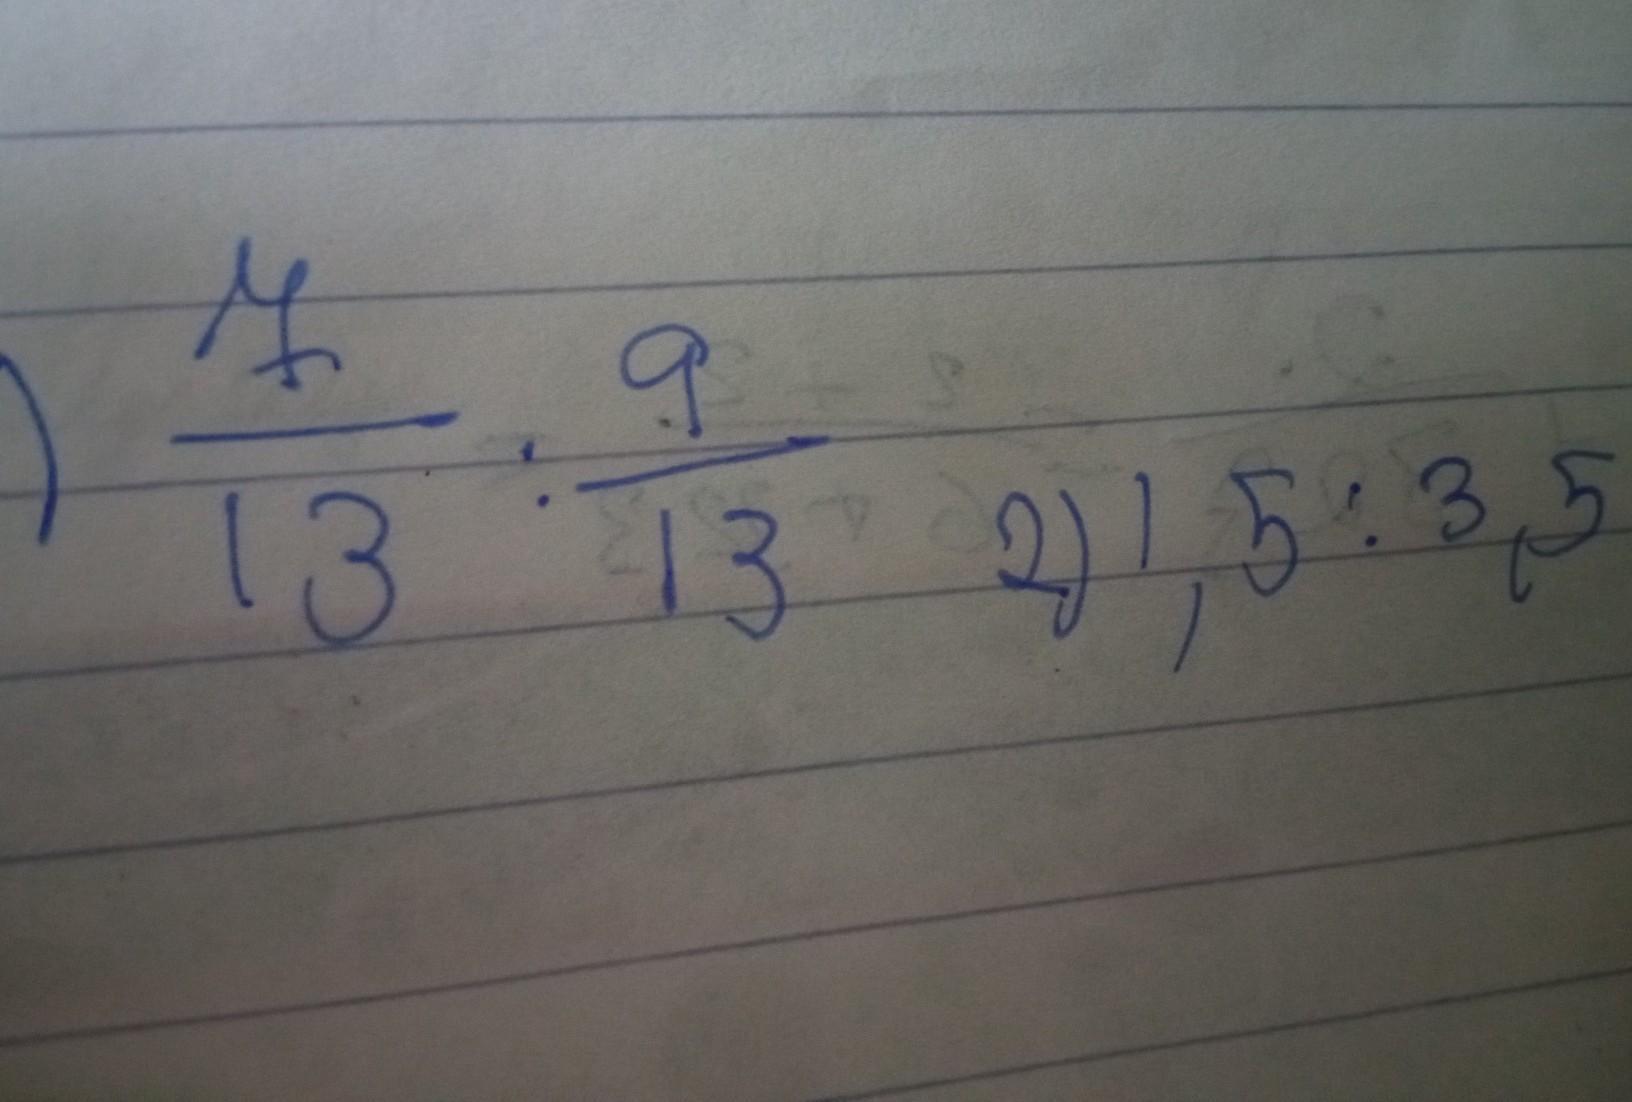 ) 7/13 : 9/13 2) 1,5 : 3,5